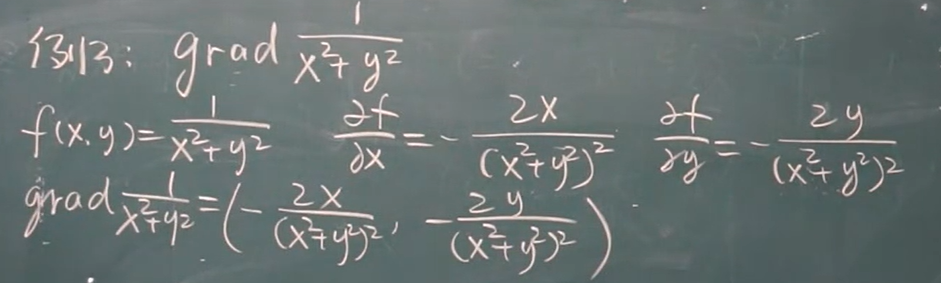 例3: grad 1/(x²+y²)
f(x,y)=1/(x²+y²) ∂f/∂x=-2x/(x²+y²)² ∂f/∂y=-2y/(x²+y²)²
grad 1/(x²+y²)=(-2x/(x²+y²)², -2y/(x²+y²)²)